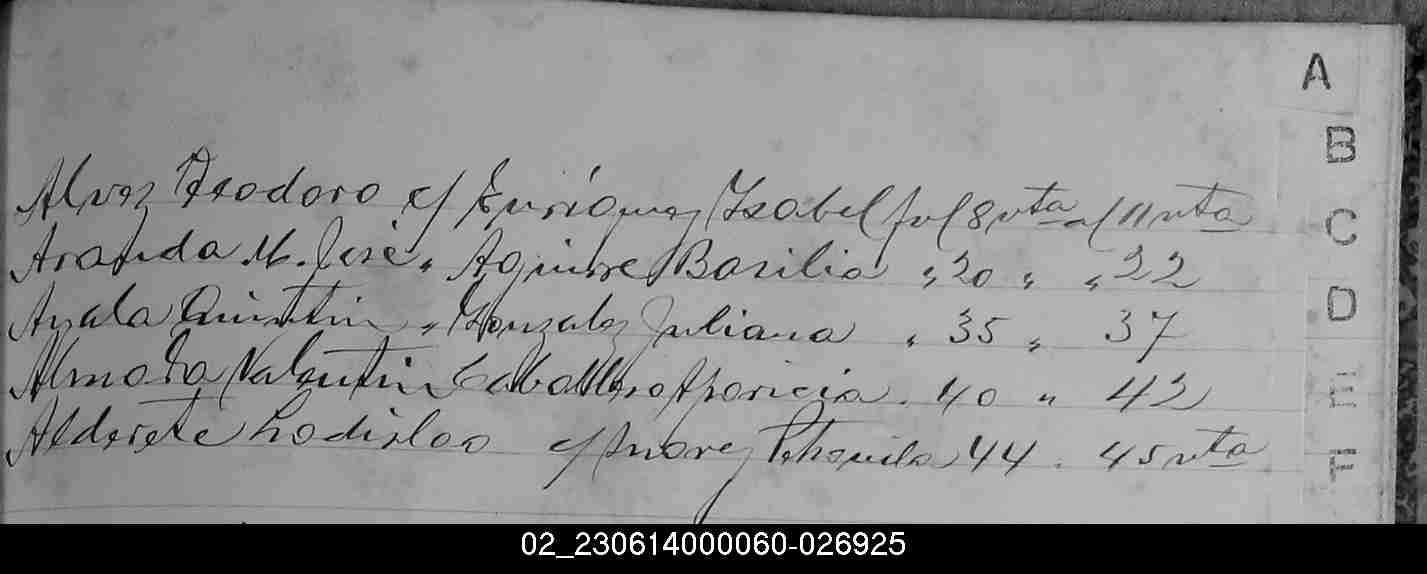 A
B
Alvez Teodoro c/ Enríquez Isabel fol 8 vta al 11 vta
C
Aranda M. José " Aguirre Basilia " 20 " " 22
D
Ayala Quintin " Gonzalez Juliana " 35 " 37
E
Almada Valentin Caballero Aparicia . 40 " 42
F
Alderete Ladislao c/ 44 . 45 vta
02_230614000060-026925